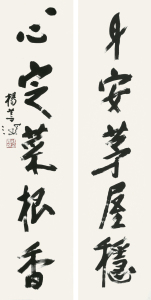 身安茅屋穩
心定菜根香
楊善深